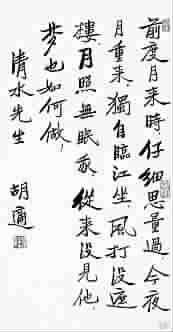 前度月来時，仔细思量過，今夜
月重来，獨自臨江坐，風打没遮
樓，月照無眠我，從来没見他，
梦也如何做！
清水先生
胡適